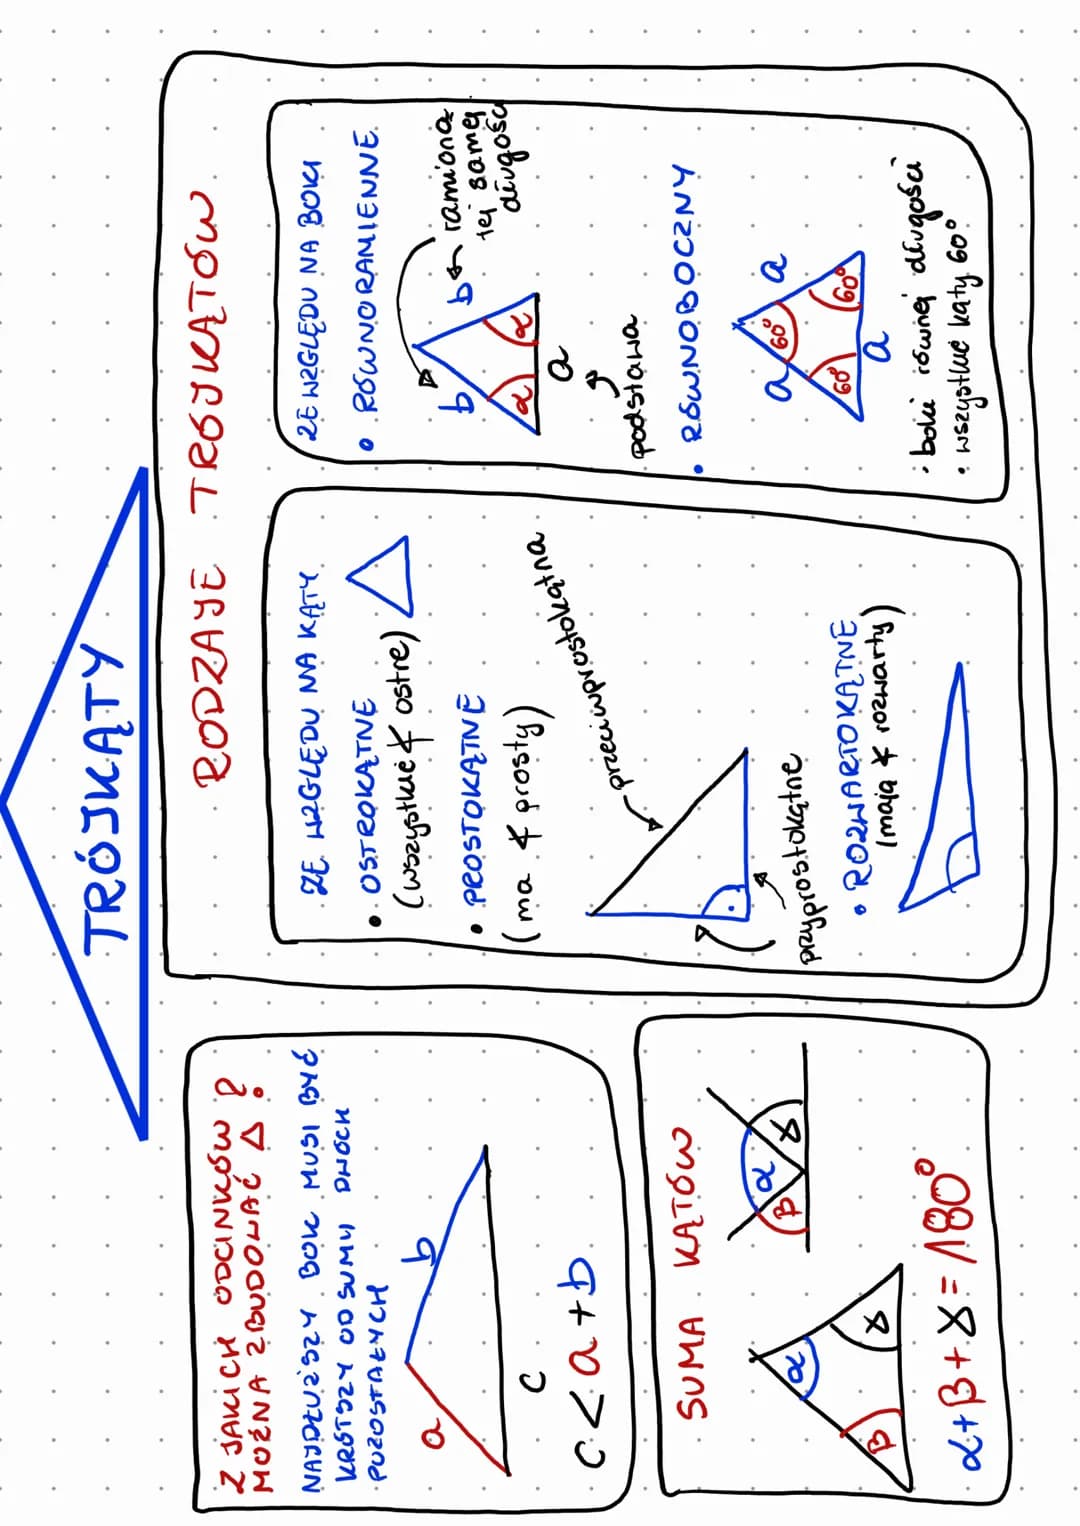 TRÓJKĄTY
Z JAKICH ODCINKÓW
MOŻNA ZBUDOWAĆ Δ ?
NAJDŁUŻSZY BOK MUSI BYĆ
KRÓTSZY OD SUMY DWÓCH
POZOSTAŁYCH
a
b
c
c < a + b
SUMA KĄTÓW
α
β
γ
β
α
γ
α + β + γ = 180°
RODZAJE TRÓJKĄTÓW
ZE WZGLĘDU NA KĄTY
• OSTROKĄTNE
(wszystkie ∢ ostre)
• PROSTOKĄTNE
(ma ∢ prosty)
przeciwprostokątna
przyprostokątne
• ROZWARTOKĄTNE
(mają ∢ rozwarty)
ZE WZGLĘDU NA BOKI
• RÓWNORAMIENNE
b
b
ramiona
tej samej
długości
α
α
a
podstawa
• RÓWNOBOCZNY
a
60°
a
60°
60°
a
• boki równej długości
• wszystkie kąty 60°